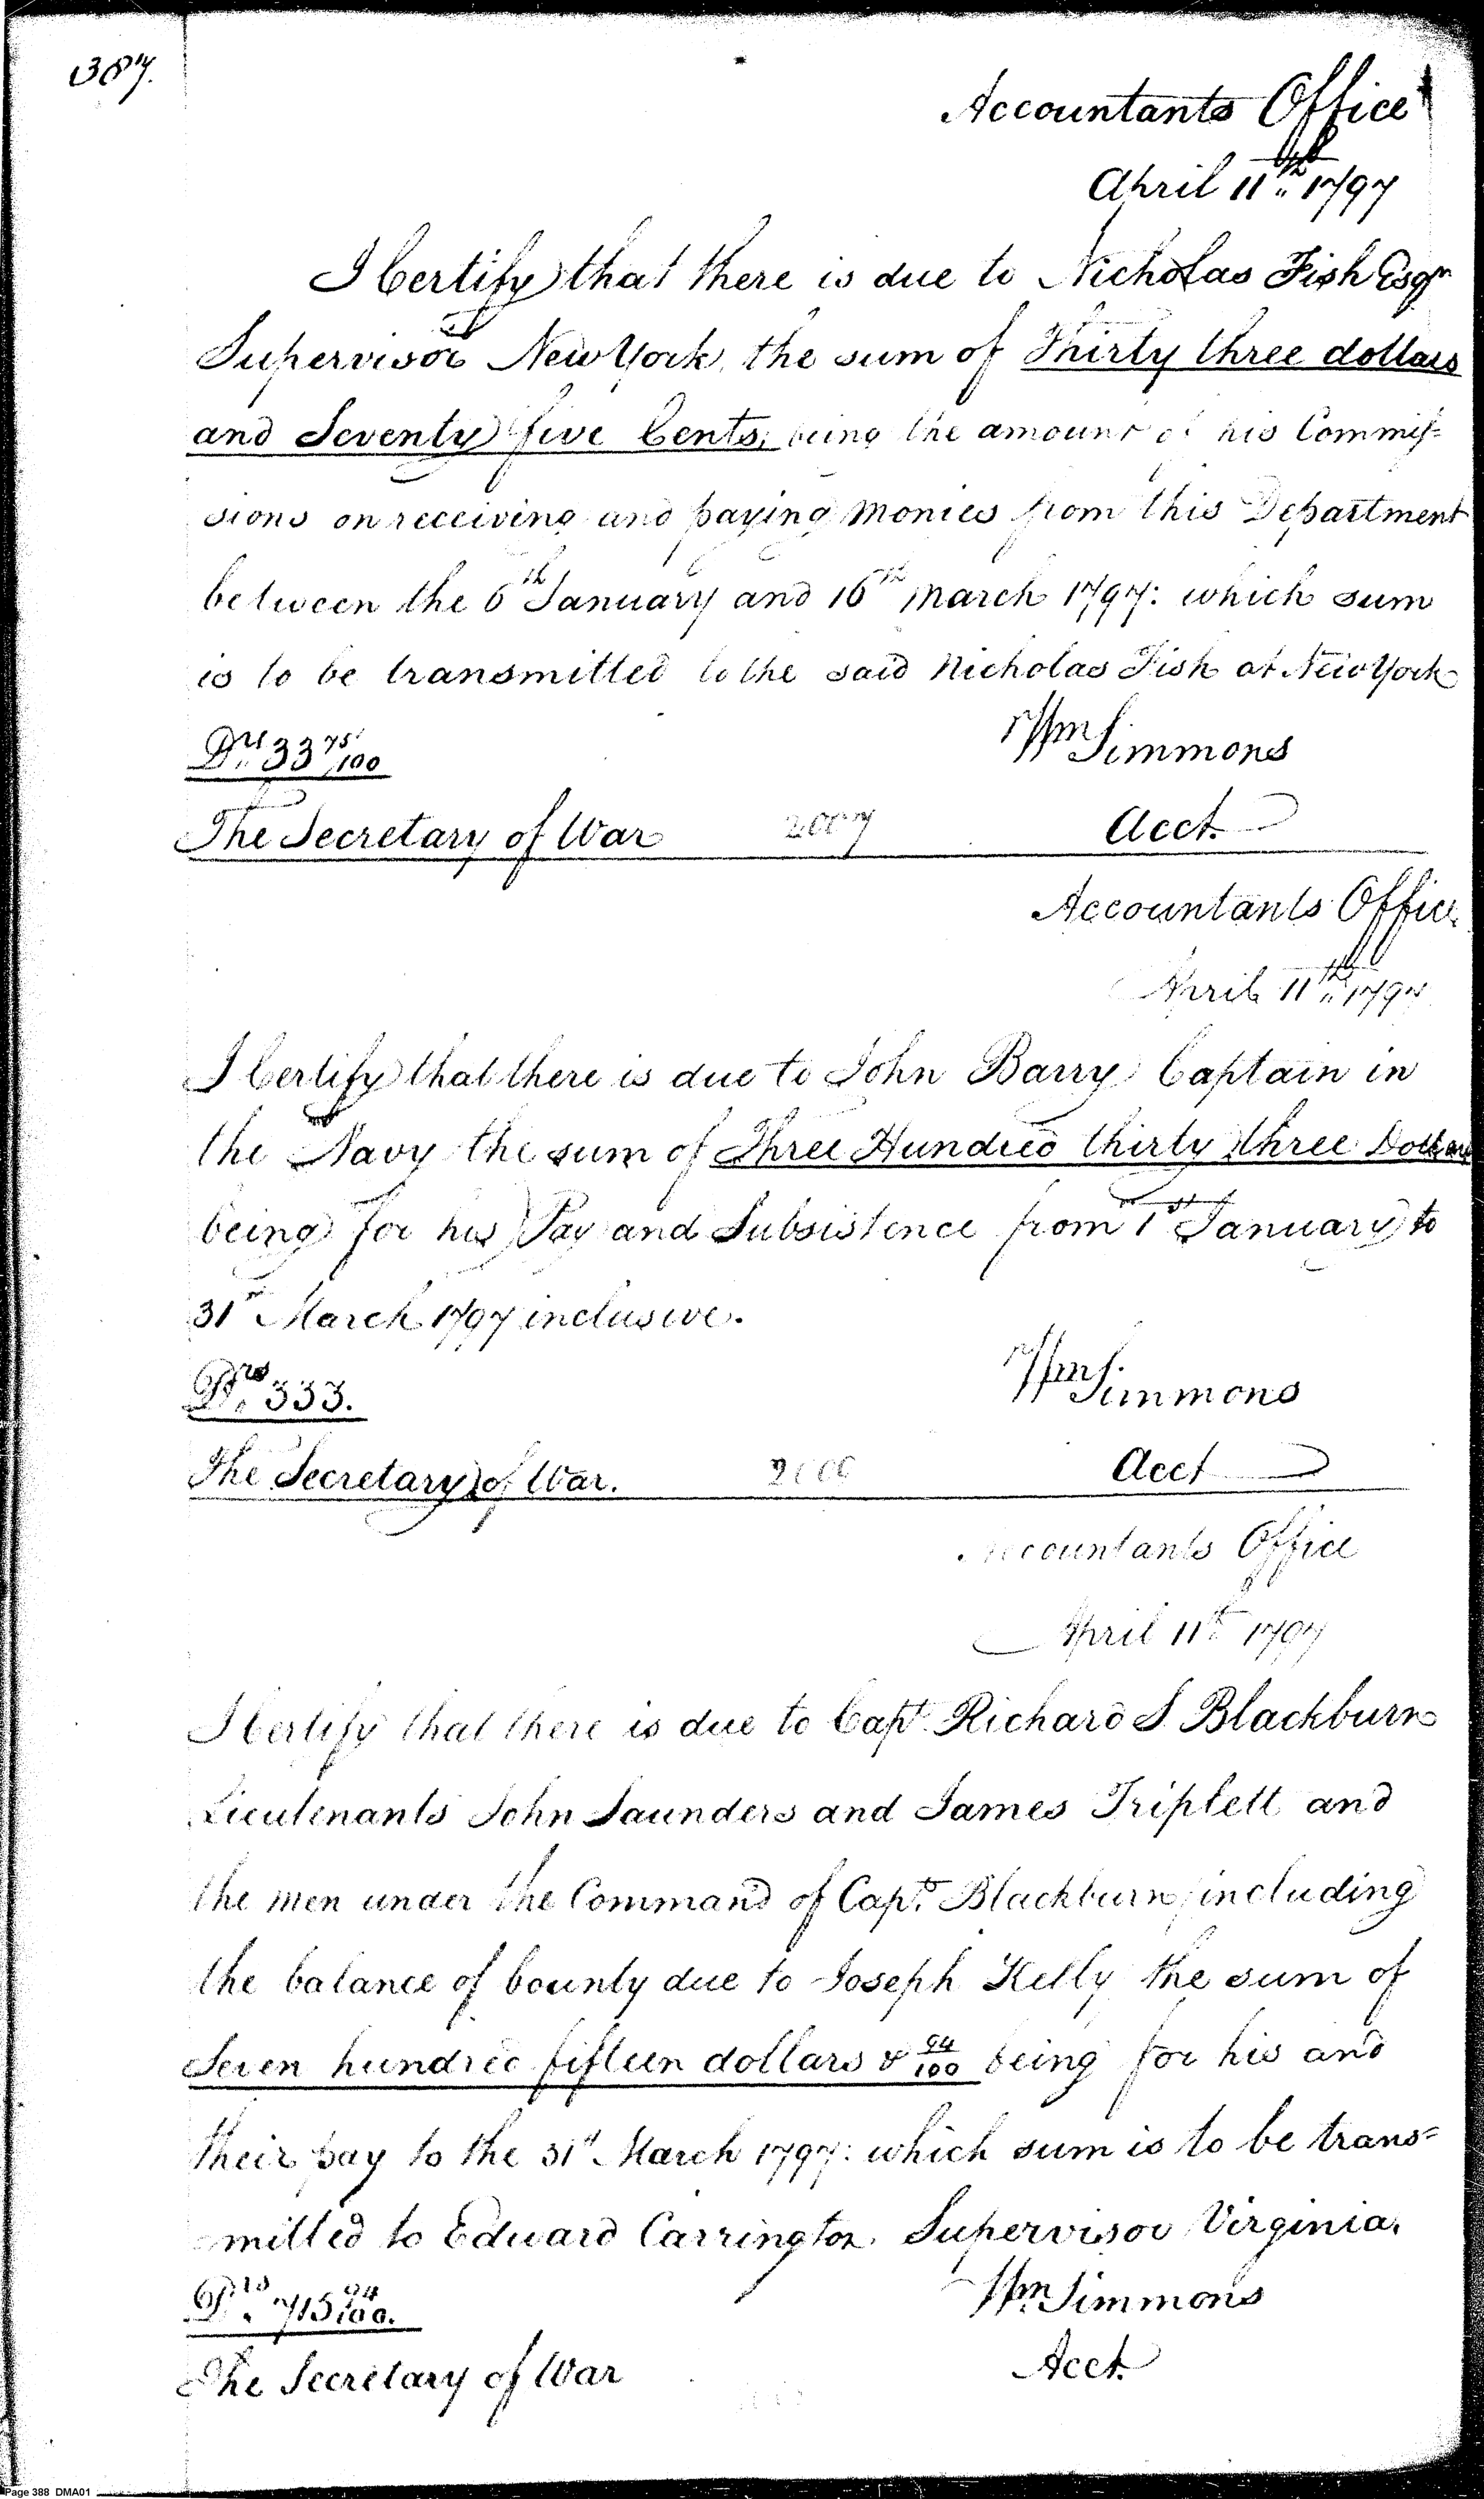 387.
Accountants Office
April 11th 1797
I Certify that there is due to Nicholas Fish Esqr
Supervisor New York, the sum of Thirty three dollars
and Seventy five Cents, being the amount of his Commis=
sions on receiving and paying monies from this Department
between the 6th January and 16th March 1797: which sum
is to be transmitted to the said Nicholas Fish at New York
Drs 33 75/100
Wm Simmons
The Secretary of War 2007 Acct.
Accountants Office
April 11th 1797
I Certify that there is due to John Barry Captain in
the Navy the sum of Three Hundred thirty three Dollars
being for his Pay and Subsistence from 1st January to
31st March 1797 inclusive.
Drs 333.
Wm Simmons
The Secretary of War. Acct
Accountants Office
April 11th 1797
I Certify that there is due to Capt. Richard S Blackburn
Lieutenants John Saunders and James Triplett and
the men under the Command of Capt. Blackburn, including
the balance of bounty due to Joseph Kelly the sum of
Seven hundred fifteen dollars & 94/100 being for his and
their pay to the 31st March 1797: which sum is to be trans=
mitted to Edward Carrington. Supervisor Virginia.
Drs 715 94/100.
Wm Simmons
The Secretary of War Acct.
Page 388 DMA01